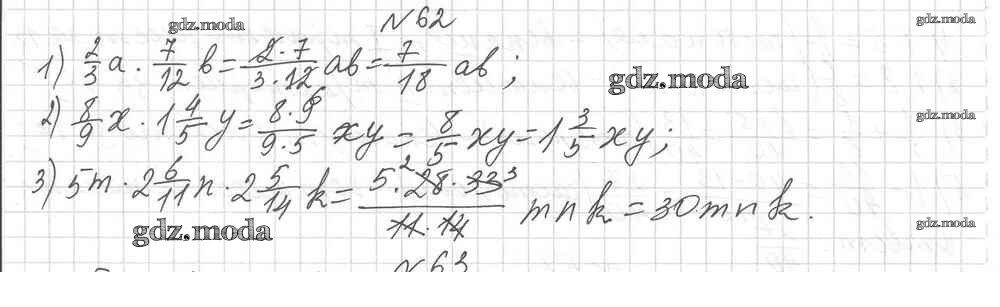 №62
gdz.moda
gdz.moda
1) 2/3 a · 7/12 b = 2·7/3·12 ab = 7/18 ab;
gdz.moda
2) 8/9 x · 1 4/5 y = 8·9/9·5 xy = 8/5 xy = 1 3/5 xy;
gdz.moda
3) 5m · 2 6/11 n · 2 5/14 k = 5·28²·33³/11·14 mnk = 30mnk.
gdz.moda
gdz.moda
№63